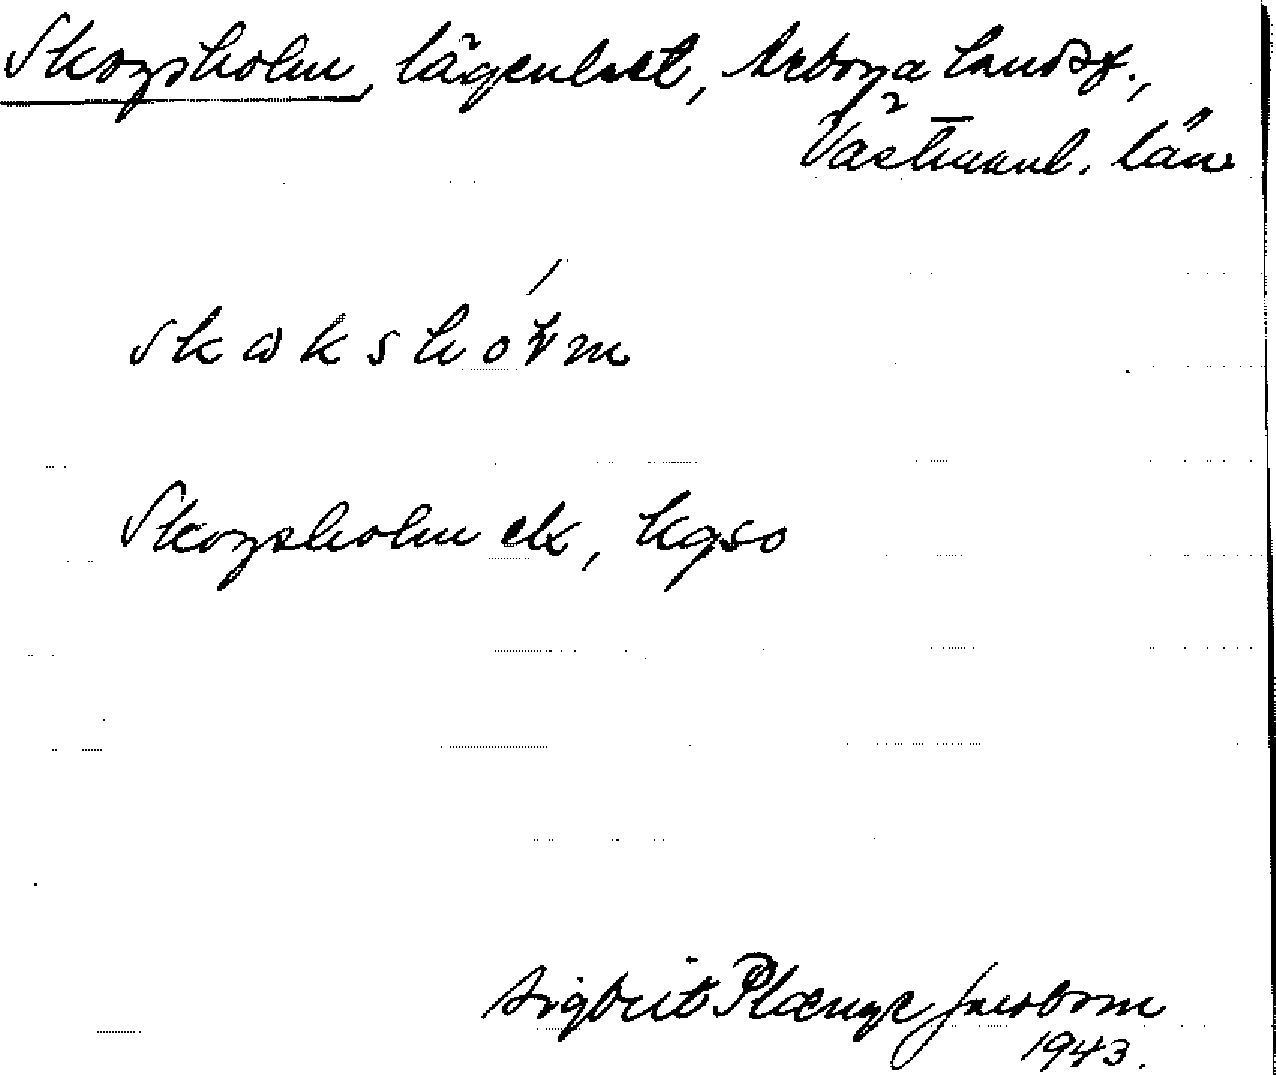 Skogsholm, lägenhet, Arboga landsf.,
Västmanl. län
Skogsholm ek, kgso
Sigbrit Plænge Jacobson
1943.